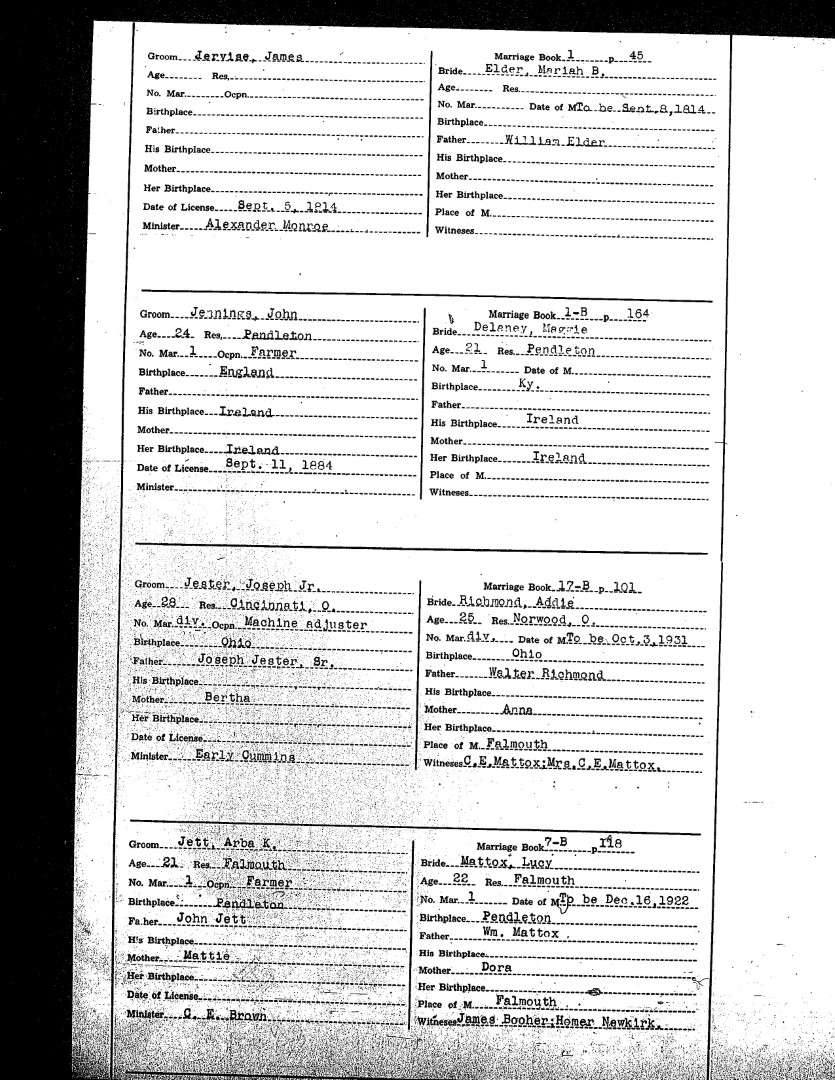 Groom Jervise, James
Age Res.
No. Mar. Ocpn.
Birthplace
Father
His Birthplace
Mother
Her Birthplace
Date of License Sept. 5, 1814
Minister Alexander Monroe
Marriage Book 1 p 45
Bride Elder, Mariah B.
Age Res.
No. Mar. Date of M To be Sept.8,1814
Birthplace
Father William Elder
His Birthplace
Mother
Her Birthplace
Place of M.
Witneses
Groom Jennings, John
Age 24 Res. Pendleton
No. Mar. 1 Ocpn. Farmer
Birthplace England
Father
His Birthplace Ireland
Mother
Her Birthplace Ireland
Date of License Sept. 11, 1884
Minister
Marriage Book 1-B p. 164
Bride Delaney, Maggie
Age 21 Res. Pendleton
No. Mar. 1 Date of M.
Birthplace Ky.
Father
His Birthplace Ireland
Mother
Her Birthplace Ireland
Place of M.
Witneses
Groom Jester, Joseph Jr.
Age 28 Res. Cincinnati, O.
No. Mar. div. Ocpn. Machine adjuster
Birthplace Ohio
Father Joseph Jester, Sr.
His Birthplace
Mother Bertha
Her Birthplace
Date of License
Minister Early Cummins
Marriage Book 17-B p. 101
Bride Richmond, Addie
Age 25 Res. Norwood, O.
No. Mar. div. Date of M To be Oct.3,1931
Birthplace Ohio
Father Walter Richmond
His Birthplace
Mother Anna
Her Birthplace
Place of M. Falmouth
Witneses C.E.Mattox;Mrs.C.E.Mattox.
Groom Jett, Arba K.
Age 21 Res. Falmouth
No. Mar. 1 Ocpn. Farmer
Birthplace Pendleton
Father John Jett
His Birthplace
Mother Mattie
Her Birthplace
Date of License
Minister C. E. Brown
Marriage Book 7-B p 118
Bride Mattox, Lucy
Age 22 Res. Falmouth
No. Mar. 1 Date of M To be Dec.16,1922
Birthplace Pendleton
Father Wm. Mattox
His Birthplace
Mother Dora
Her Birthplace
Place of M. Falmouth
Witneses James Booher;Homer Newkirk.